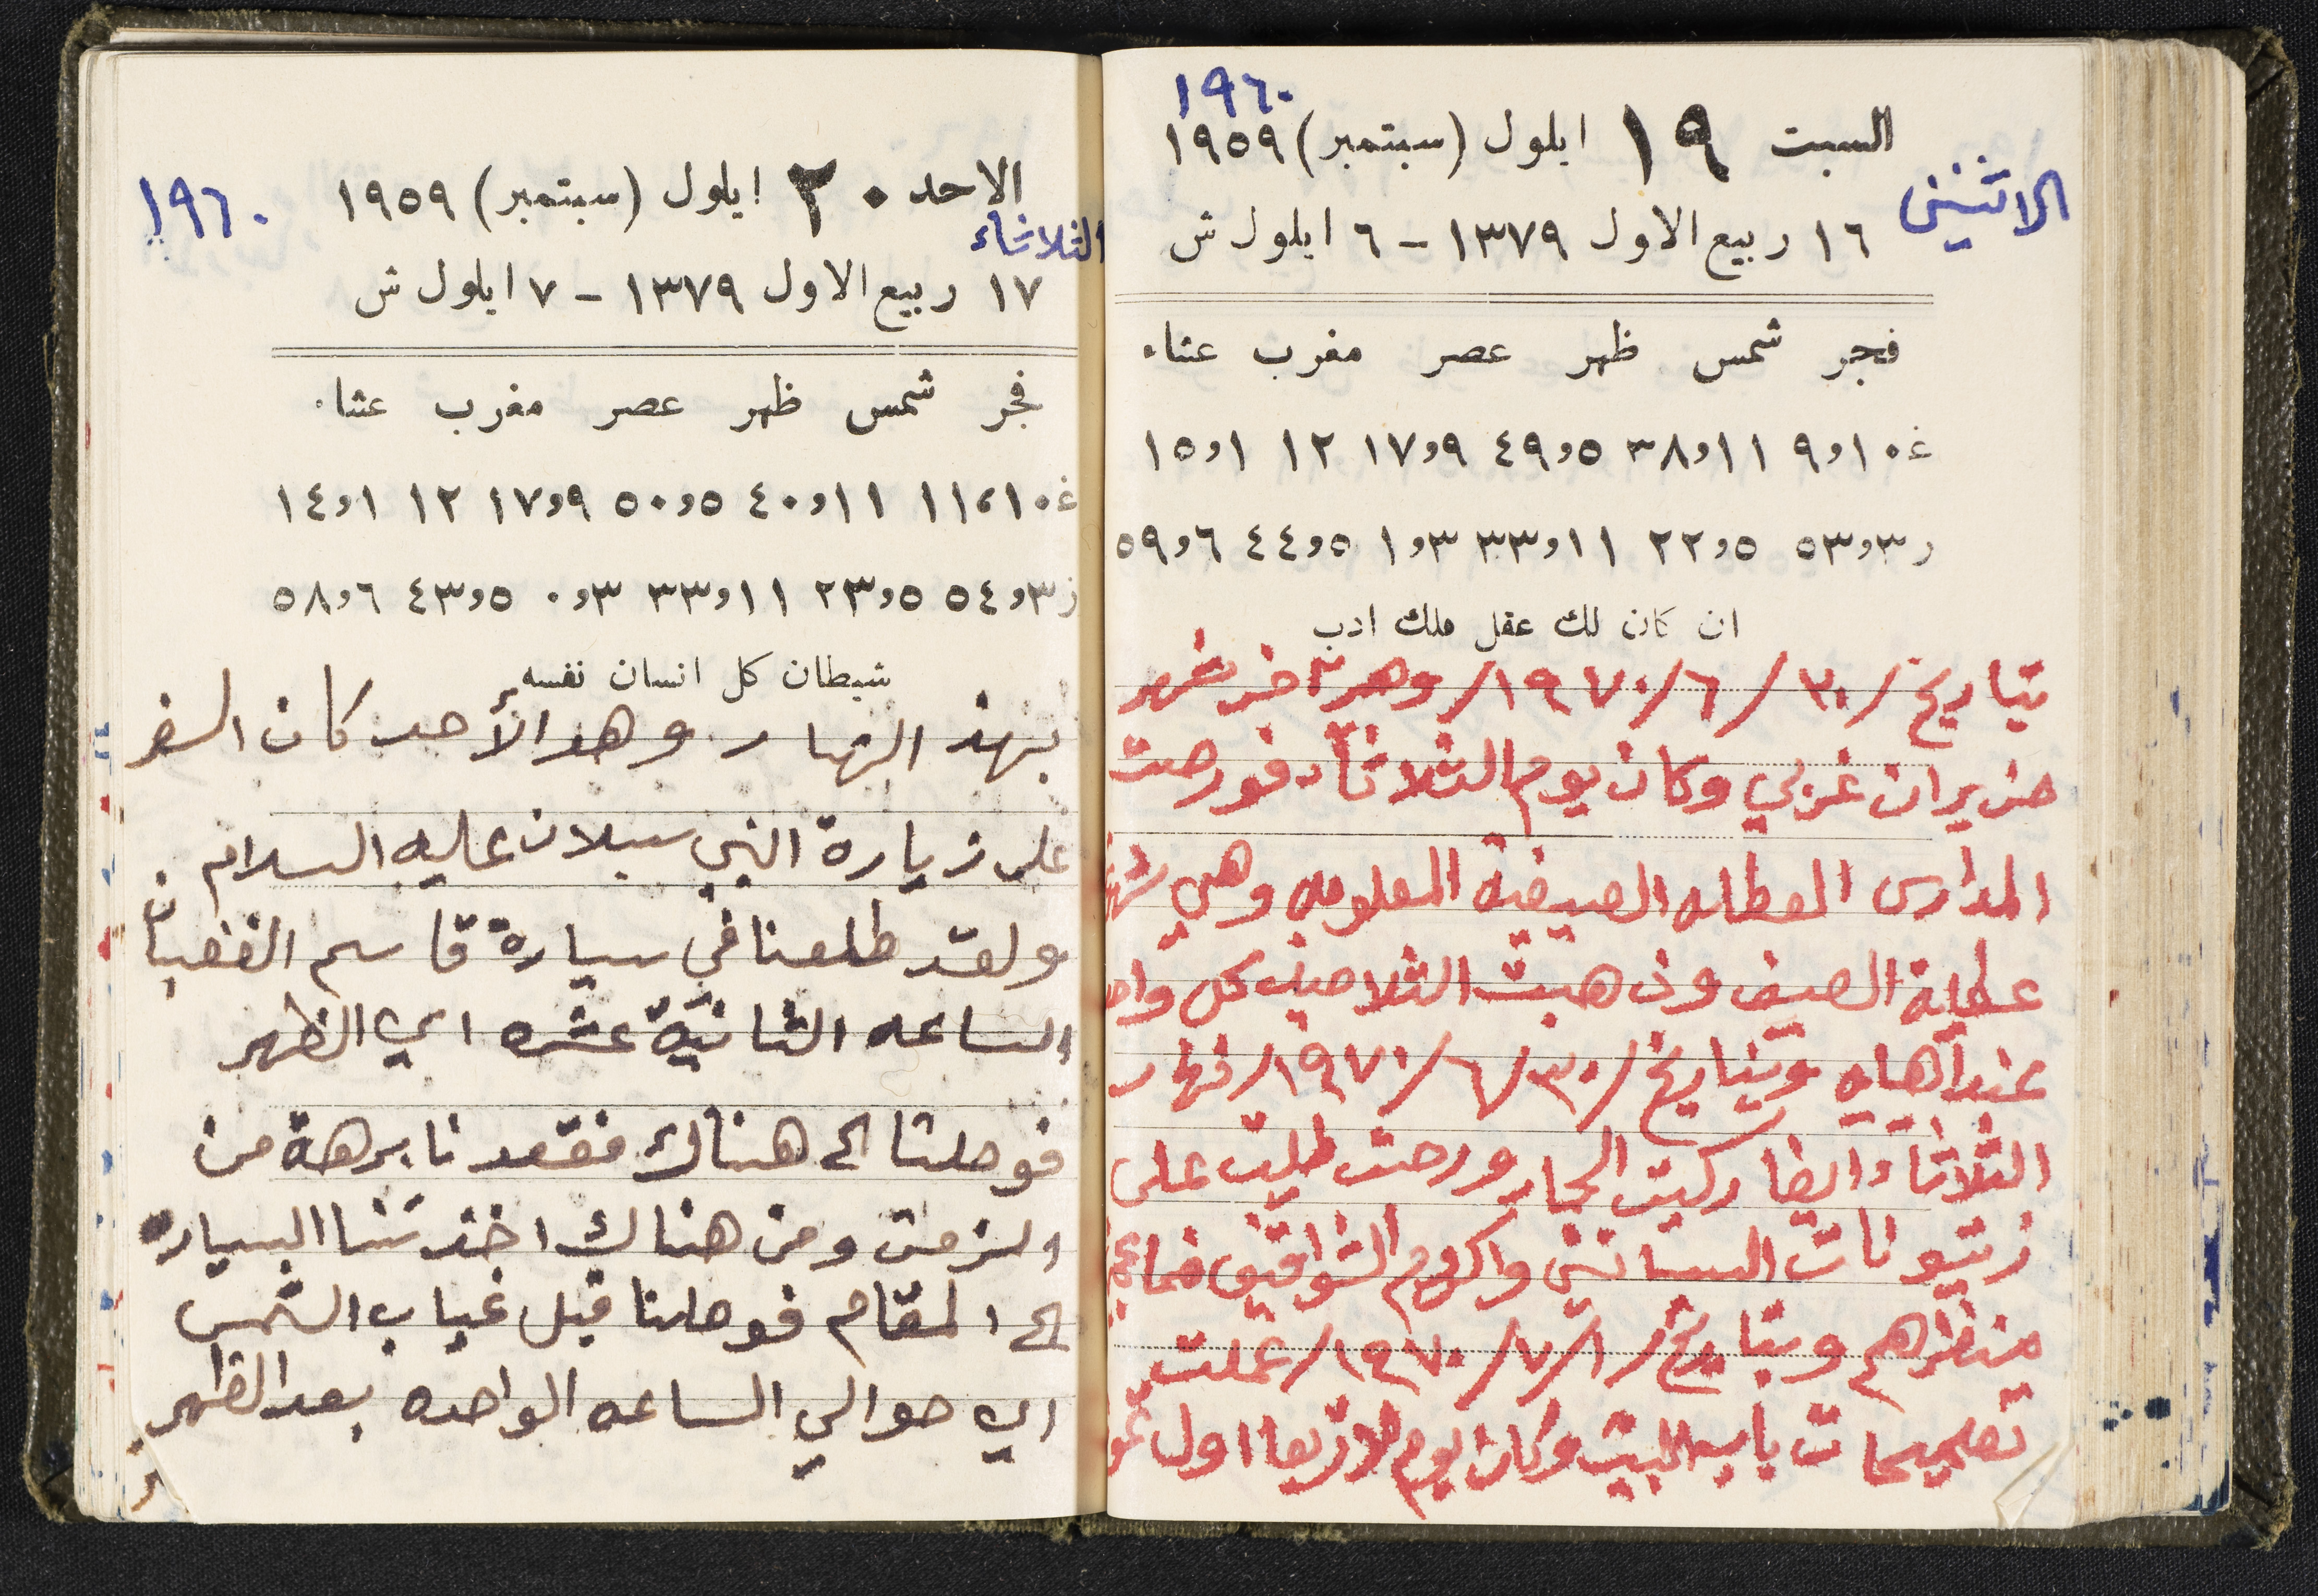 ١٩٦٠
السبت ١٩ ايلول (سبتمبر) ١٩٥٩
الاثنين
١٦ ربيع الاول ١٣٧٩ - ٦ ايلول ش
فجر شمس ظهر عصر مغرب عشاء
غ ١٠و٩ ١١و٣٨ ٥و٤٩ ٩و١٧ ١٢ ١و١٥
ز ٣و٥٣ ٥و٢٢ ١١و٣٣ ٣و١ ٥و٤٤ ٦و٥٩
ان كان لك عقل ملك ادب
بتاريخ /٣٠/٦/١٩٧٠/ وهو آخر شهر
حزيران غربي وكان يوم الثلاثاء فورصت
المدارس العطله الصيفية المعلومه وهي
عطلة الصيف وذهبت التلاميذ كل واحد
عند اهله وبتاريخ /٣٠/٦/١٩٧٠/ نهار
الثلاثاء ايضا ركبت الحمار ورحت طليت على
زيتونات البساتين واكروم الشواقيف فما
منظرهم وبتاريخ /١/٧/١٩٧٠/ عملت
تصليحات باب البيت وكان يوم الاربعا اول
الاحد ٢٠ ايلول (سبتمبر) ١٩٥٩
١٩٦٠
الثلاثاء
١٧ ربيع الاول ١٣٧٩ - ٧ ايلول ش
فجر شمس ظهر عصر مغرب عشاء
غ ١٠،١١ ١١و٤٠ ٥و٥٠ ٩و١٧ ١٢ ١و١٤
ز ٣و٥٤ ٥و٢٣ ١١و٣٣ ٣و٠ ٥و٤٣ ٦و٥٨
شيطان كل انسان نفسه
بهذ النهار وهو الأحد كان السفر
على زيارة النبي سبلان عليه السلام
ولقد طلعنا في سيارة قاسم الغضبان
الساعه الثانية عشره اي الظهر
فوصلنا الى هناك فقعدنا برهة من
الزمن ومن هناك اخذتنا السياره
الى المقام فوصلنا قبل غياب الشمس
اي حوالي الساعه الواحده بعد الظهر